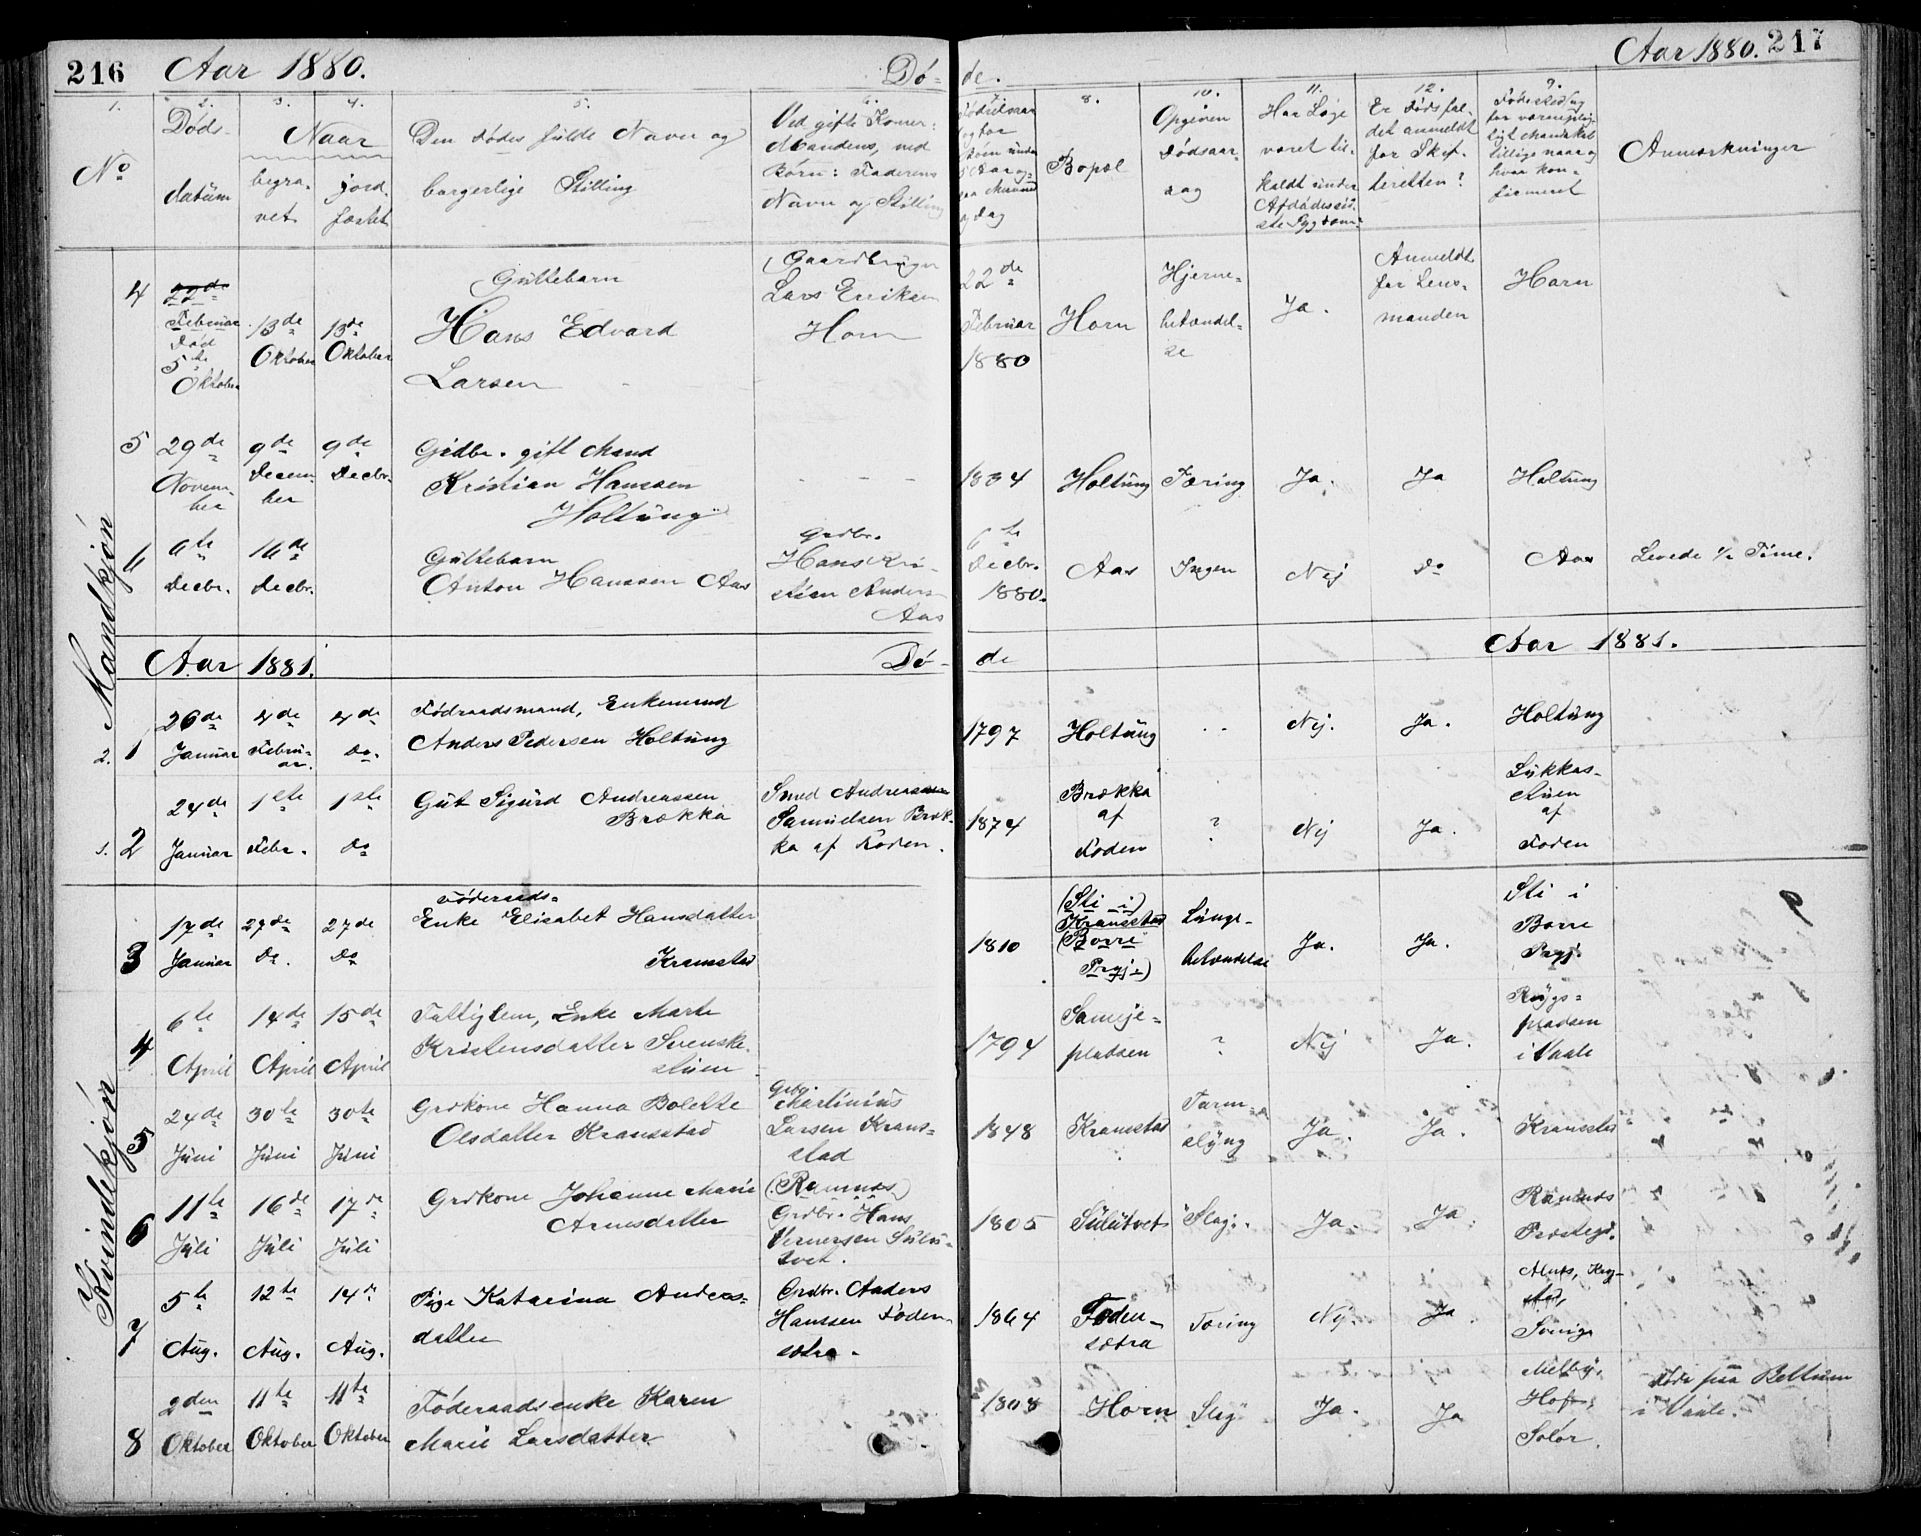 216 Aar 1880. Dø-
de. Aar 1880. 217
1. 2. 3. 4. 5. 6.
7. 8. 10. 11. 12. 9.
No
Døds-
datum
Naar
begra-
vet
jord-
fæstet
Den Dødes fulde Navn og
borgerlige Stilling
Ved gifte Koner:
Mandens, ved
Børn: Faderens
Navn og Stilling
Fødselsaar
og for
Børn under
og Dag
Bopæl
Opgiven
Dødsaar-
sag
Har Læge
været til-
kaldt under
Afdødes sid-
ste Sygdom
Er Dødsfal-
det anmeldt
for Skif-
teretten?
Fødested og
for
tillige naar og
hvor kon-
firmeret
Anmærkninger
Mandkjøn
4
22de
Februar
Død
5te
Oktober
13de
Oktober
13de
Oktober
Guttebarn
Hans Edvard
Larsen
Gaardbruger
Lars Eriksen
Horn
22de
Februar
1880
Horn
Hjerne-
betændel-
se
Ja.
Anmeldt
for Lens-
manden
Horn
5
29de
Novem-
ber
9de
Decem-
ber
9de
Decbr.
Grdbr. gift Mand
Kristian Hanssen
Holtung
- - -
1834
Holtung
Tæring
Ja.
Ja
Holtung
6
6te
Decbr.
16de
Decbr.
Guttebarn
Anton Hanssen Aas
Grdbr.
Hans Kri-
stian Anders-
Aas
6te
Decbr.
1880.
Aas
Ingen
Nej
Do
Aas
Levede ½ Time.
Aar 1881. Dø-
de Aar 1881.
2. 1
26de
Januar
4de
Febru-
ar.
4de
Do.
Føderaadsmand, Enkemand
Anders Pedersen Holtung
1797
Holtung
Nej.
Ja.
Holtung
1. 2
24de
Januar
1ste
Febr.
1ste
Do
Gut Sigurd Andreassen
Brækka
Smed Andreassen
Samuelsen Bræk-
ka af Foden.
1874
Brækka
af
Foden
?
Nej
Ja.
Lykkas-
stuen
af
Foden
Kvindekjøn
3
17de
Januar
27de
Do.
27de
Do
Føderaads-
Enke Elisabet Hansdatter
Kramstad
1810
(Sti i)
Kramstad
(Borre
Prgj.)
Lunge-
betændelse
Ja.
Ja.
Sti i
Borre
Prgj.
4
6te
April
14de
April
15de
April
Fattiglem, Enke Marte
Kristensdatter Svenske-
stuen
1794
Sameje-
pladsen
?
Nej
Ja.
Rygs-
pladsen
i Vaale
5
24de
Juni
30te
Juni
30te
Juni
Grdkone Hanna Bolette
Olsdatter Kramstad
Grdbr.
Martinius
Larsen Kram-
stad
1848
Kramstad
Tarm-
slyng
Ja.
Ja.
Kramstad
6
11te
Juli
16de
Juli
17de
Juli
Grdkone Johanne Marie
Arnesdatter
(Ramnes)
Grdbr. Hans
Vernersen Sulu-
tvet.
1805
Sulutvet
Slag.
Ja.
Ja.
Ramnes
Præstegj.
7
5te
Aug.
12te
Aug.
14de
Aug.
Pige Katarina Anders-
datter
Grdbr. Anders
Hanssen Foden-
sætra.
1864
Foden-
sætra
Tæring
Nej.
Ja
Sverige
8
2den
Oktober
11te
Oktober
11te
Oktober
Føderaadsenke Karen
Marie Larsdatter
1808
Horn
Slag
Ja.
Ja
Melby,
Hof,
Solør.
Født paa Bettum
i Vaale.